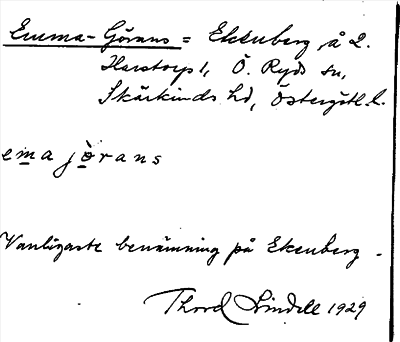 Emma-Görans = Ekenberg å 2.
Harstorp 1, Ö. Ryds sn,
Skärkinds hd, Östergötl. l.
ema jörans
Vanligaste benämning på Ekenberg.
Thord Lindell 1929